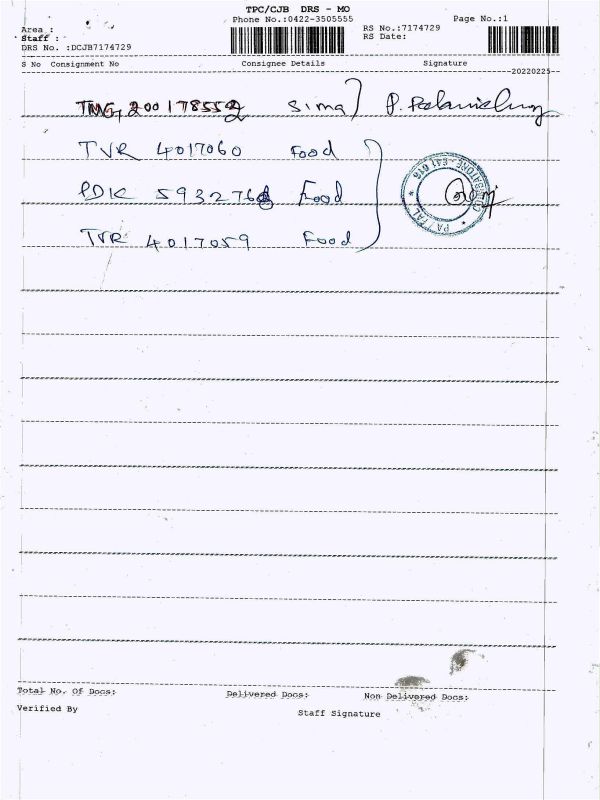 TPC/CJB DRS - MO
Phone No.:0422-3505555 Page No.:1
Area :
Staff :
RS No.:7174729
RS Date:
DRS No. :DCJB7174729
S No Consignment No Consignee Details Signature
20220225
TMG 200178552 Sima
TVR 4017060 Food
PDK 5932768 Food
TVR 4017059 Food
641 016
Total No. Of Docs: Delivered Docs: Non Delivered Docs:
Verified By Staff Signature